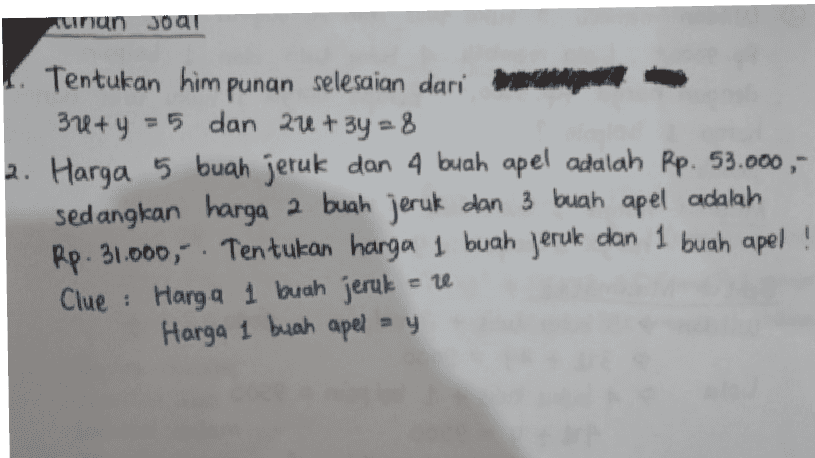 Latihan Soal
1. Tentukan himpunan selesaian dari
3x + y = 5 dan 2x + 3y = 8
2. Harga 5 buah jeruk dan 4 buah apel adalah Rp. 53.000,-
sedangkan harga 2 buah jeruk dan 3 buah apel adalah
Rp. 31.000,-. Tentukan harga 1 buah jeruk dan 1 buah apel !
Clue : Harga 1 buah jeruk = x
Harga 1 buah apel = y